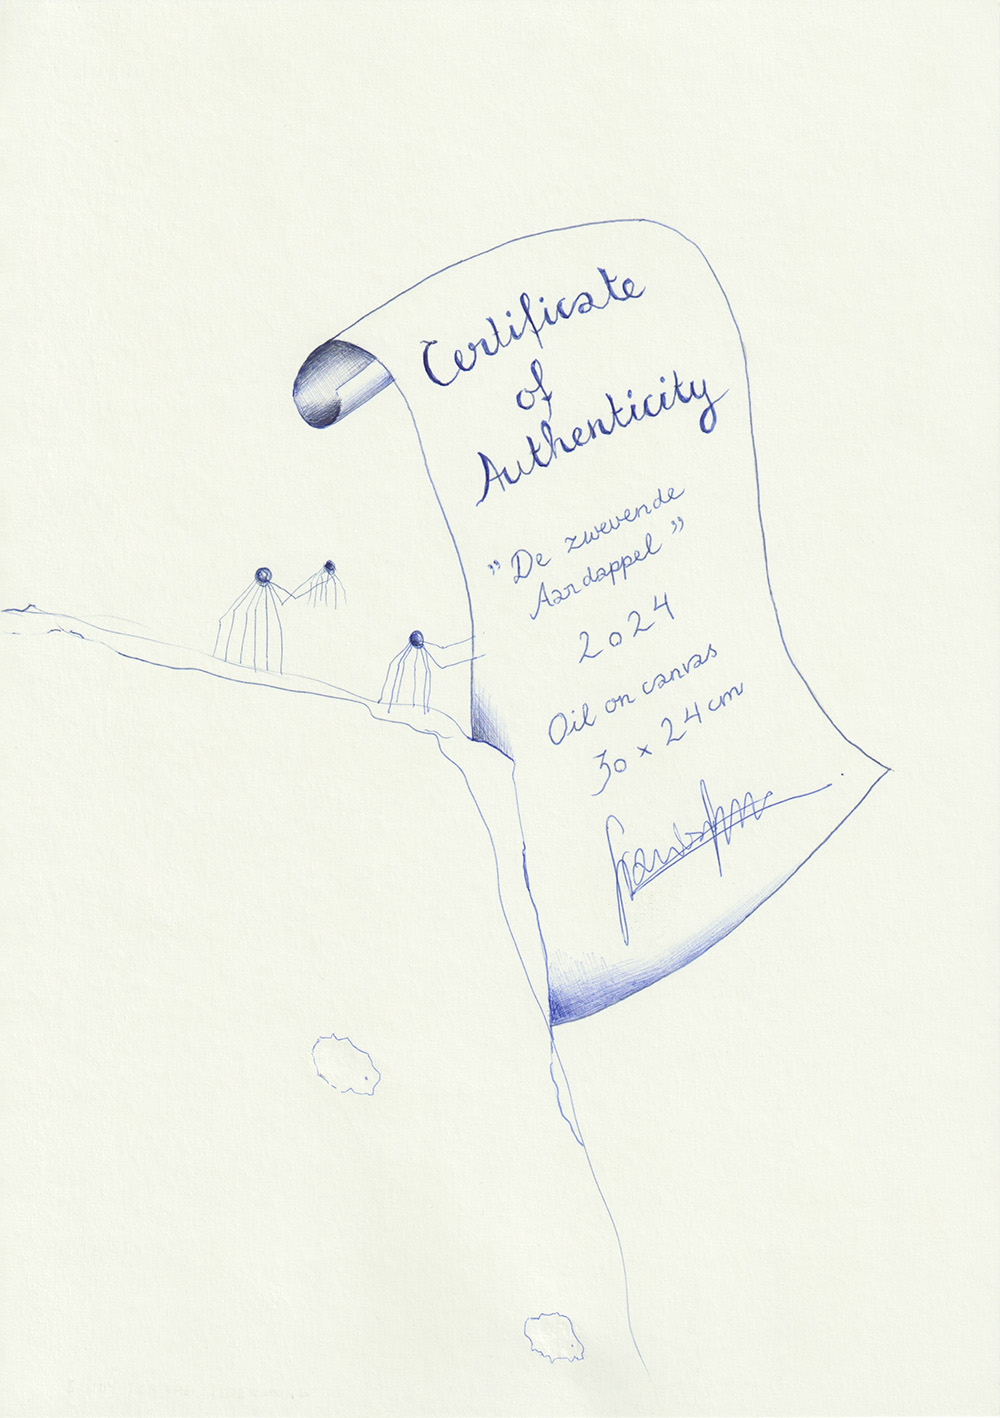 Certificate
of
Authenticity
"De zwevende
Aardappel"
2024
Oil on canvas
30 x 24 cm